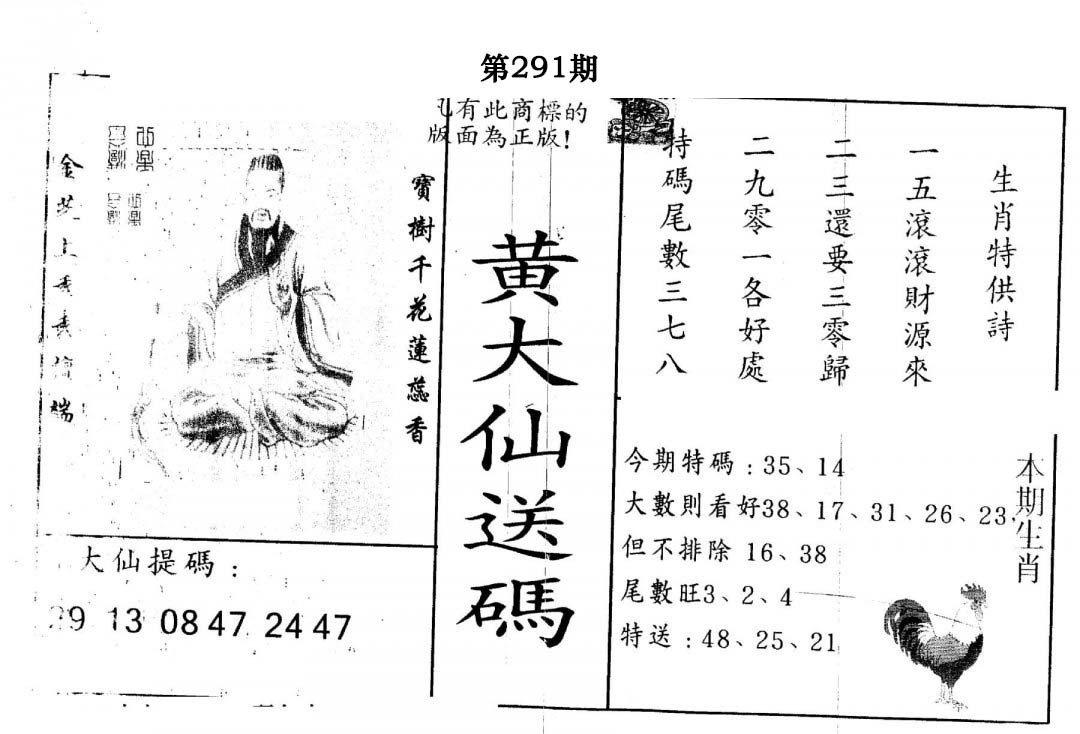 第291期
凡有此商標的
版面為正版!
黄大仙送碼
寶樹千花蓮蕊香
大仙提碼:
13 08 47 24 47
生肖特供詩
一五滾滾財源來
二三還要三零歸
二九零一各好處
特碼尾數三七八
本期生肖
今期特碼:35、14
大數則看好38、17、31、26、23、
但不排除 16、38
尾數旺3、2、4
特送:48、25、21